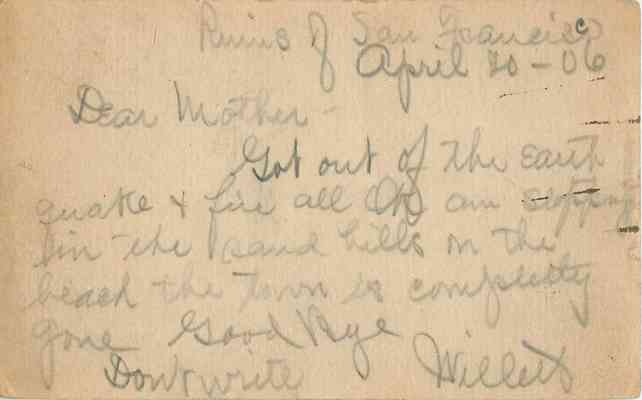 Ruins of San Francisco
April 20-06
Dear Mother-
Got out of the earth
quake & fire all OK am slepping
in the sand hills on the
beach the town is completly
gone Good Bye
Dont write Willett